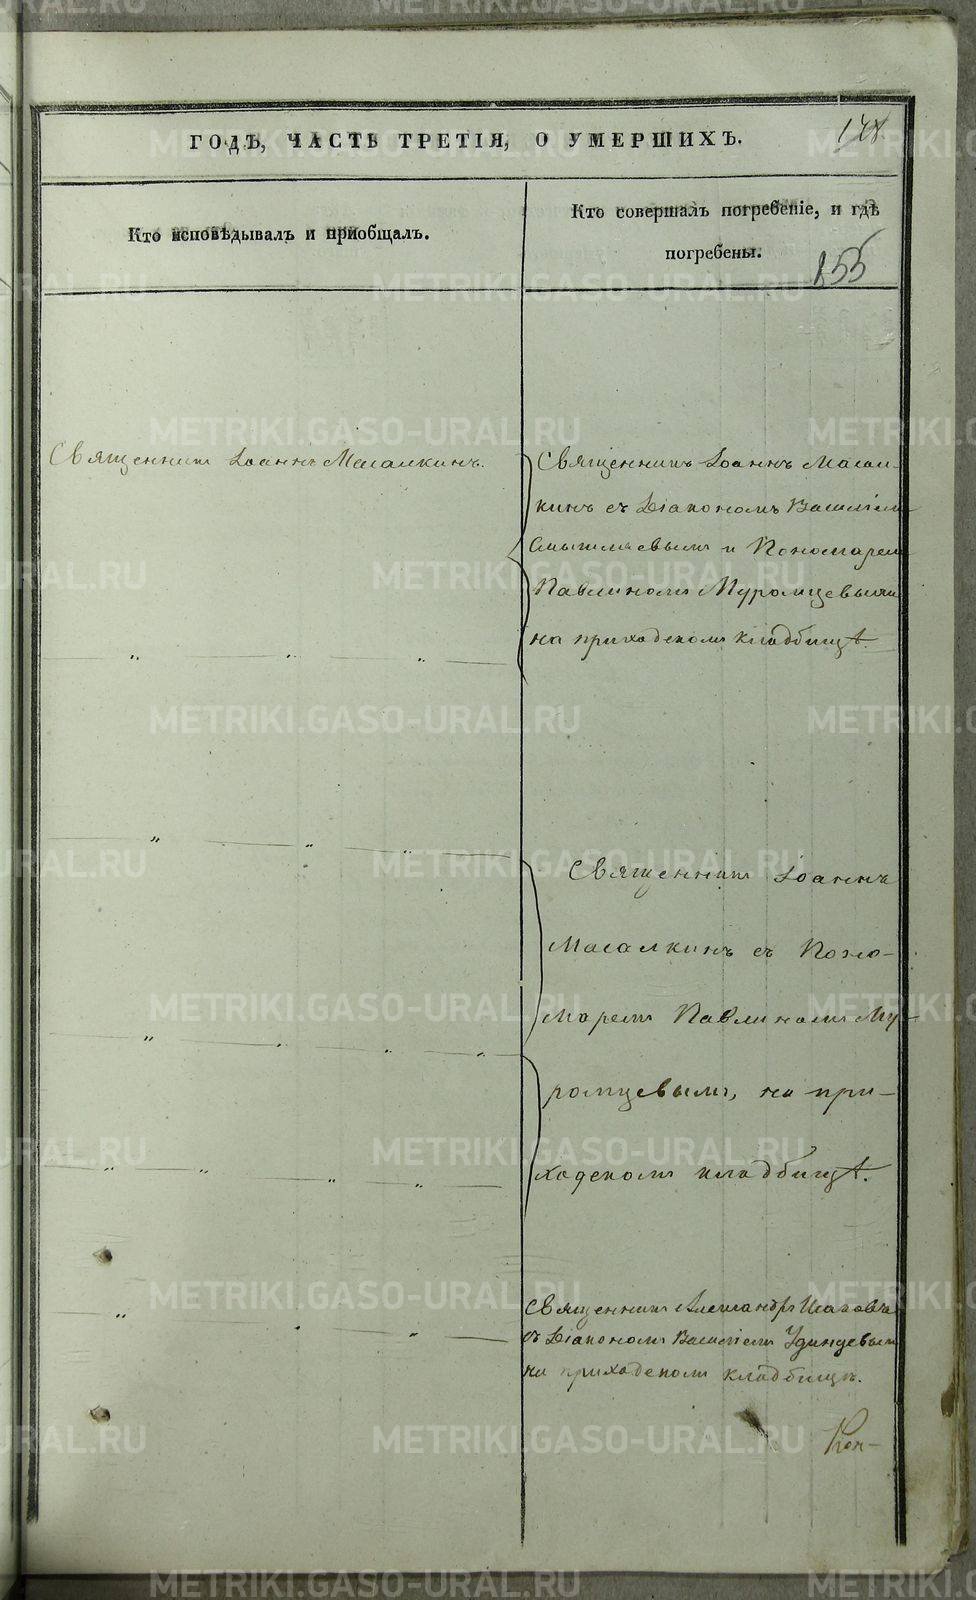 ГОДЪ, ЧАСТЬ ТРЕТІЯ, О УМЕРШИХЪ.
148
Кто исповѣдывалъ и пріобщалъ.
Кто совершалъ погребеніе, и гдѣ
погребены.
255
Священникъ Іоаннъ Масалкинъ.
Священникъ Іоаннъ Масал-
кинъ съ Діакономъ Василіемъ
Смышляевымъ и Пономаремъ
Павлиномъ Муромцевымъ
на приходскомъ кладбищѣ.
Священникъ Іоаннъ
Масалкинъ съ Поно-
маремъ Павлиномъ Му-
ромцевымъ, на при-
ходскомъ кладбищѣ.
Священникъ Александръ
съ Діакономъ Василіемъ Удинцевымъ
на приходскомъ кладбищѣ.
METRIKI.GASO-URAL.RU